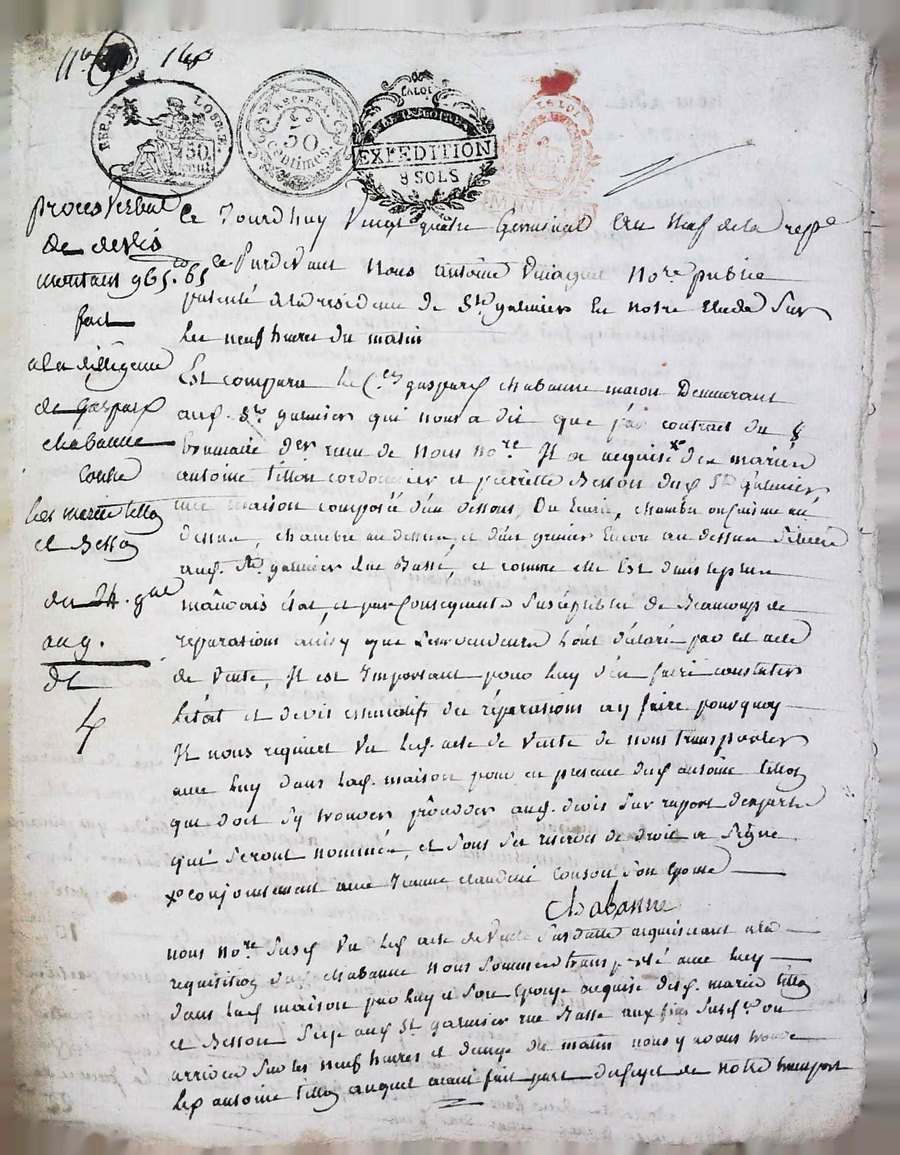 140
REP. FRA.
50
Centimes.
LA LOI
EXPEDITION
8 SOLS
LA LOI
proces Verbal
de devis
montant 965. 65
fait
a la diligence
de gaspard
chabanne
contre
les mariés tillon
et Besson
du 24. g.al
an 9.
Ce Jourdhuy Vingt quatre Germinal an Neuf de la rep.e
Pardevant Nous antoine No.re public
patenté a la residence de S.t galmier En notre Etude Sur
les neuf heures du matin
Est comparu le C.en gaspard chabanne maçon Demeurant
aud. S.t galmier qui nous a dit que par contrat du 8
brumaire d.er reçu de Nous no.re Il a acquis x des mariés
antoine tillon cordonnier et pierrette Besson dud. S.t galmier
une maison composée d'un dessous, Du Ecurie, chambre ou Cuisine au
dessus, chambre au dessus, et d'un grenier Encore au dessus Située
aud. S.t galmier Rue Basse, et comme elle Est dans le plus
mauvais état, et par Consequent Susceptible de Beaucoup de
reparations ainsy que les vendeurs L'ont déclaré par cet acte
de Vente, Il est Important pour luy d'en faire constater
l'état et devis estimatifs des réparations a y faire pourquoy
Il nous requiert Vu led. acte de Vente de nous transporter
avec luy dans lad. maison pour en presence dud. antoine tillon
qui doit s'y trouver procéder aud. devis sur raport d'experts
qui seront nommés, et sous ses reserves de droit a Signé
x conjointement avec Jeanne claudine Consort son Epouse
chabanne
nous no.re Susd. Vu led. acte de Vente Susdatté acquiescant a la
requisition dud. chabanne nous sommes transporté avec luy
dans lad. maison par luy et son Epouse acquise desd. mariés tillon
et Besson Sise aud. S.t galmier rue Basse aux fins Susd.es ou
arrivés sur les neuf heures et demye du matin nous y avons trouvé
led. antoine tillon auquel avant fait part du sujet de notre transport